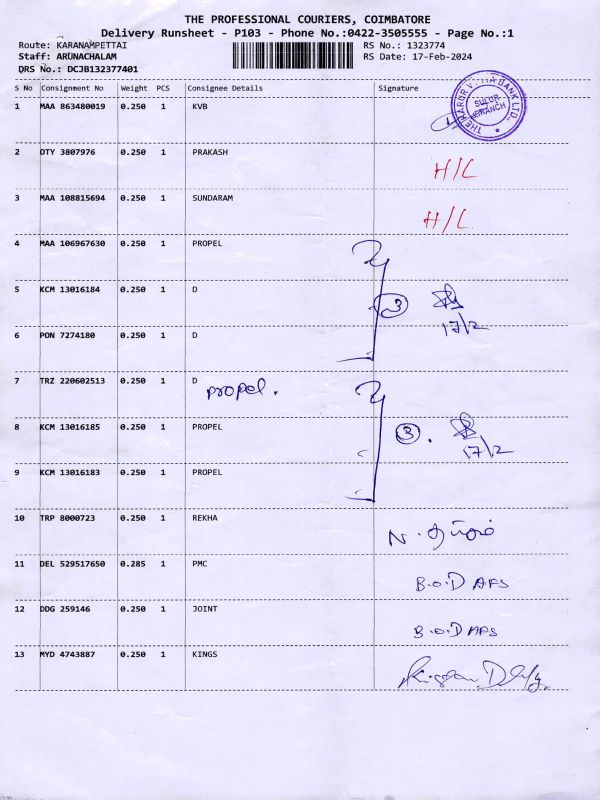 THE PROFESSIONAL COURIERS, COIMBATORE
Delivery Runsheet - P103 - Phone No.:0422-3505555 - Page No.:1
Route: KARANAMPETTAI RS No.: 1323774
Staff: ARUNACHALAM RS Date: 17-Feb-2024
DRS No.: DCJB132377401
S No Consignment No Weight PCS Consignee Details Signature
1 MAA 863480019 0.250 1 KVB
THE KARUR VYSYA BANK LTD.
SULUR
BRANCH
2 DTY 3807976 0.250 1 PRAKASH H/L
3 MAA 108815694 0.250 1 SUNDARAM H/L
4 MAA 106967630 0.250 1 PROPEL
5 KCM 13016184 0.250 1 D 3
17/2
6 PON 7274180 0.250 1 D
7 TRZ 220602513 0.250 1 D propel.
8 KCM 13016185 0.250 1 PROPEL 3.
17/2
9 KCM 13016183 0.250 1 PROPEL
10 TRP 8000723 0.250 1 REKHA N.
11 DEL 529517650 0.285 1 PMC B.O.D AFS
12 DDG 259146 0.250 1 JOINT B.O.D AFS
13 MYD 4743887 0.250 1 KINGS